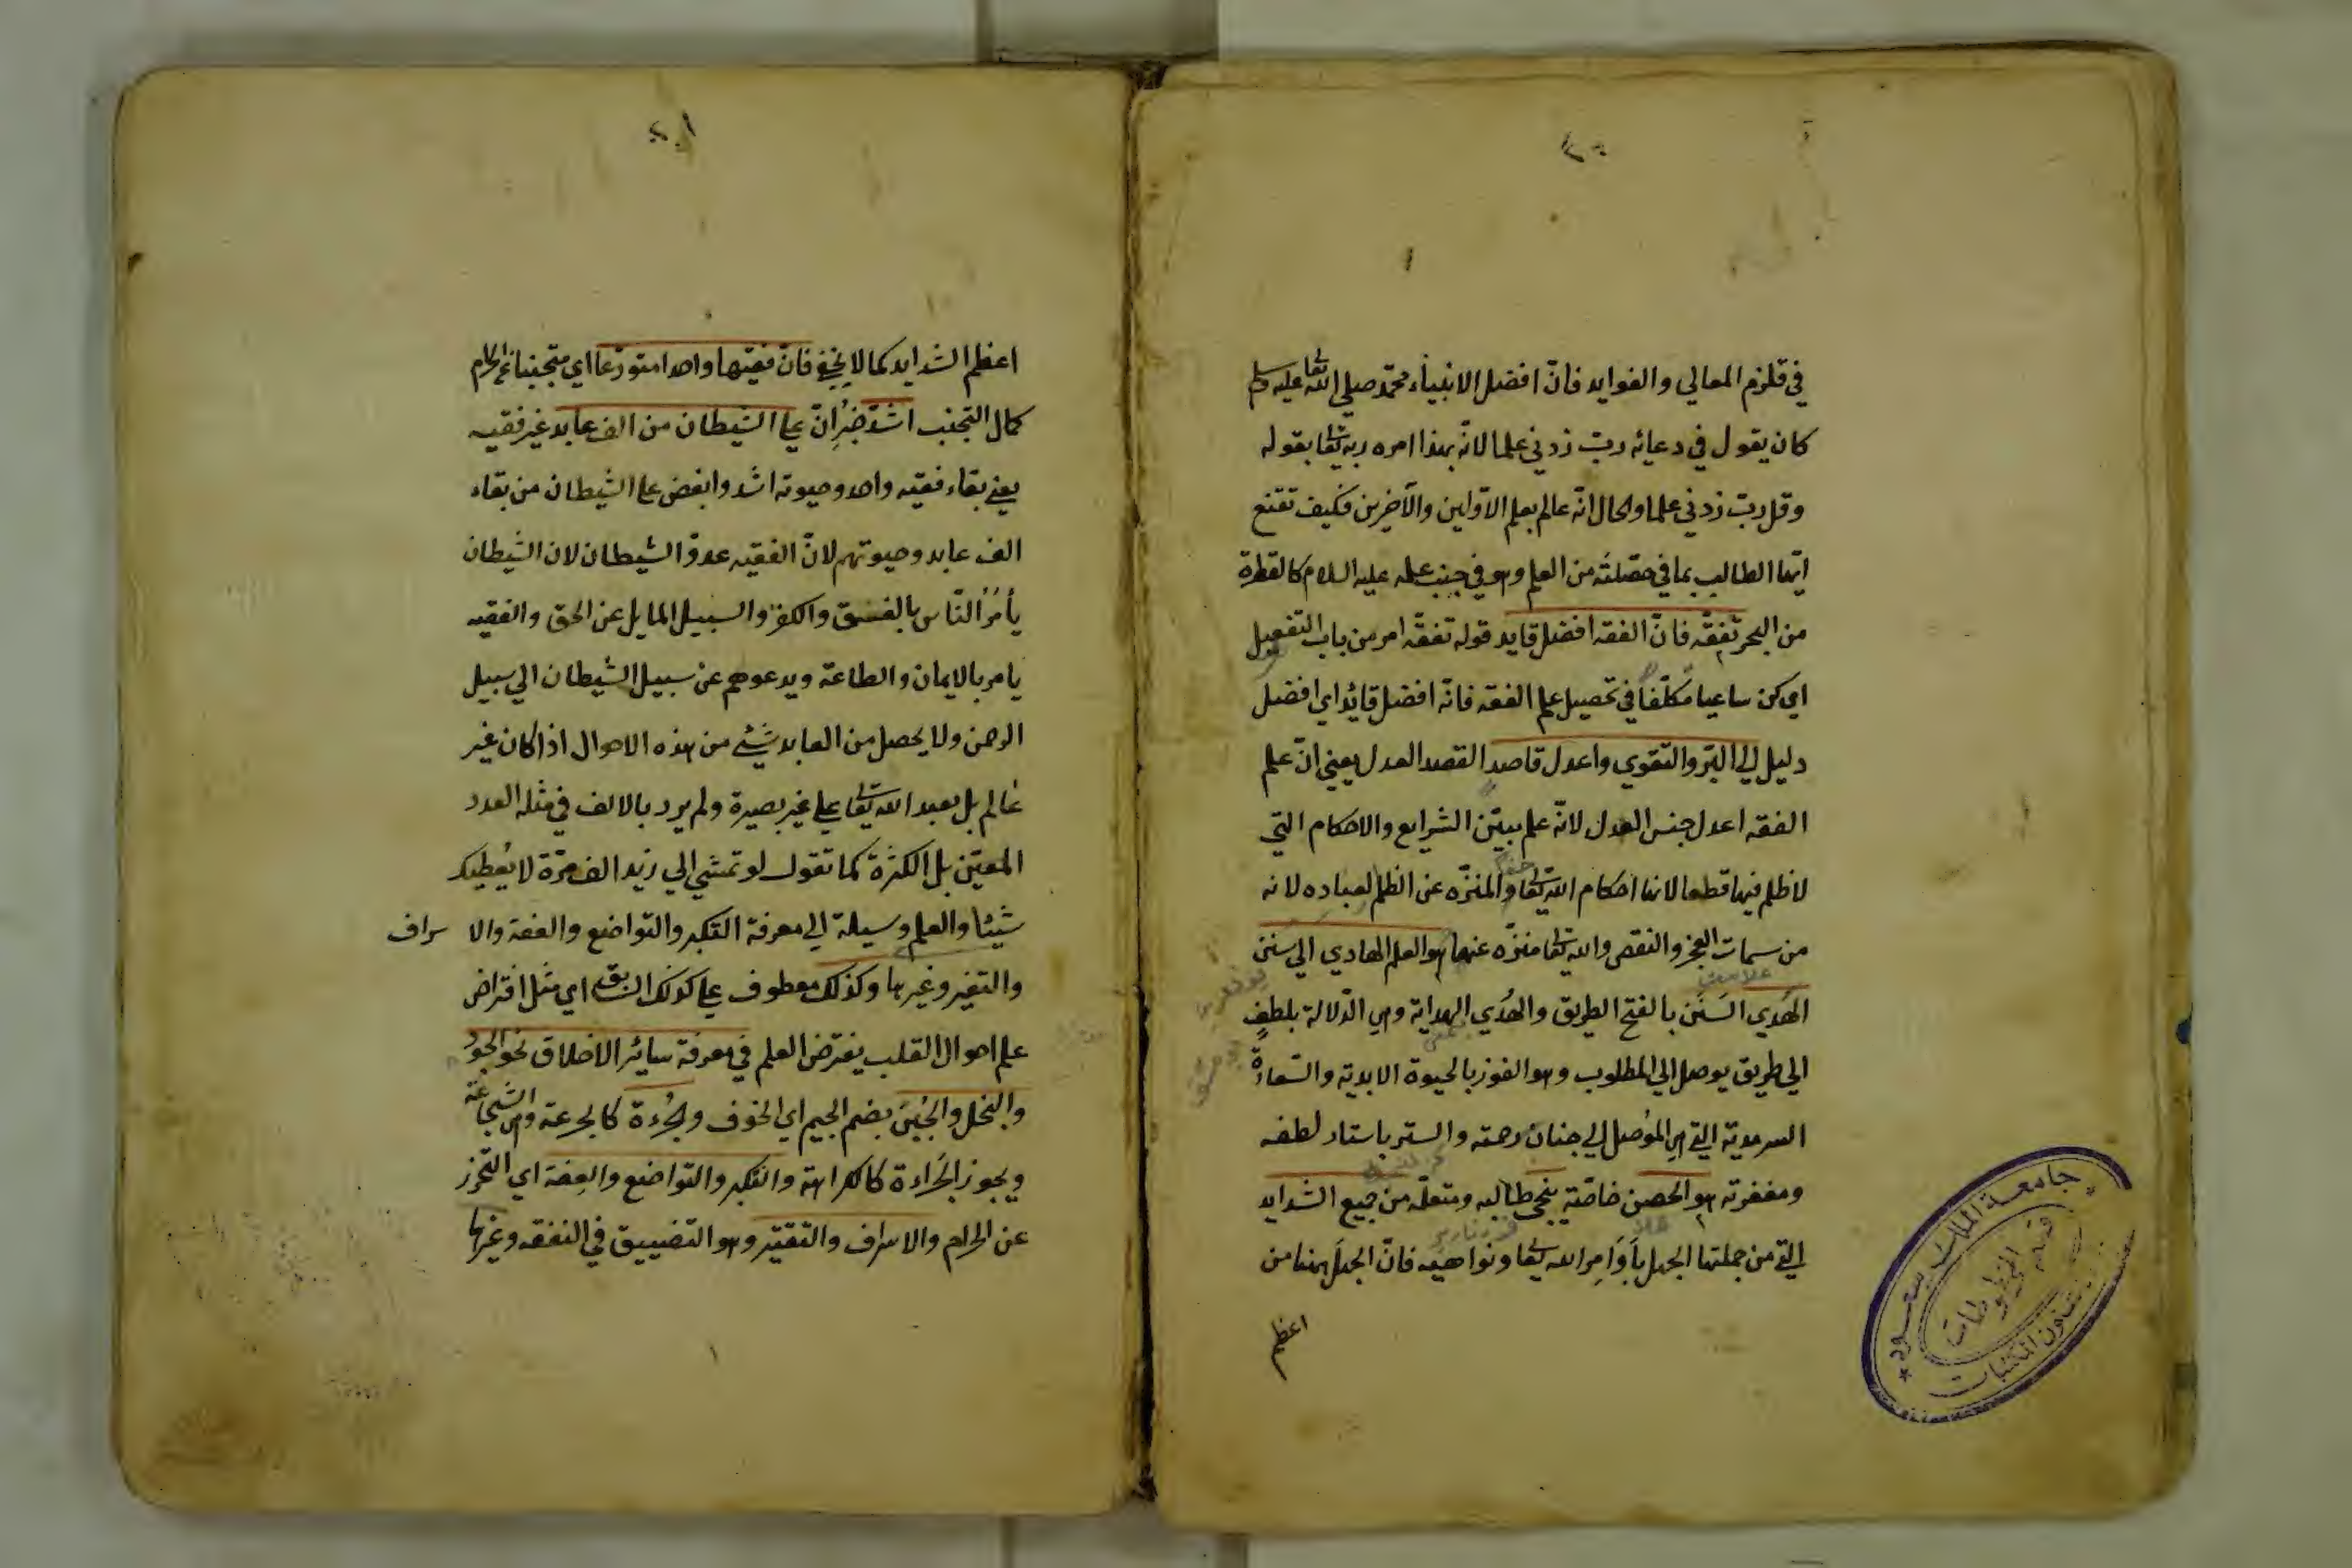 في قلزم المعالي والفوايد فانّ افضل الانبياء محمّد صلى الله تعا عليه وسلم
كان يقول في دعائه ربّ زدني علما لانّه بهذا امره ربه تعا بقوله
وقل ربّ زدني علما والحال انّه عالم بعلم الاوّلين والآخرين فكيف تقنع
ايّها الطالب بما في حصّلته من العلم وهو في جنب علمه عليه السلام كالقطرة
من البحر تفقّه فانّ الفقه افضل قايد قوله تفقّه امر من باب التفعيل
اي كن ساعيا مكلّفا في تحصيل علم الفقه فانّه افضل قائد اي افضل
دليل الي البرّ والتقوي واعدل قاصد القصد العدل يعني انّ علم
الفقه اعدل جنس العدل لانّه علم يبيّن الشرايع والاحكام التي
لا ظلم فيها قطعا لانها احكام الله تعا والمنزّه عن الظلم لعباده لانه
من سمات العجز والنقص والله تعا منزّه عنها هو العلم الهادي الي سنن
الهُدي السَنَن بالفتح الطريق والهُدي الهداية وهي الدّلالة بلطفٍ
الي طريق يوصل الي المطلوب وهو الفوز بالحيوة الابدية والسّعادة
السرمدية التي هي الموُصل الي جنان رحمته والستر باستار لطفه
ومغفرته هو الحصن خاصّية ينجي طالبه ومتعلّمه من جميع الشدايد
التي من جملتها الجهل بأوَامِر الله تعا ونواهيه فانّ الجهل بهنا من
اعظم
اعظم الشدايد كما لا يخفي فانّ فقيها واحدا متورّعا اي متجنبا عن الحرام
كمال التجنب اشدّ خبرُ انّ علي الشيطان من الف عابد غير فقيه
يعني بقاء فقيه واحد وحيوته اشد وابغض علي الشيطان من بقاء
الف عابد وحيوتهم لانّ الفقيه عدوّ الشيطان لان الشيطان
يأمُرُ النّاس بالفسق والكفر والسبيل المايل عن الحق والفقيه
يامر بالايمان والطاعة ويدعوهم عن سبيل الشيطان الي سبيل
الرحمن ولا يحصل من العابد شيئ من هذه الاحوال اذا كان غير
عالم بل يعبد الله تعا علي غير بصيرة ولم يرد بالالف في مثله العدد
المعيّن بل الكثرة كما تقول لو تمشي الي زيد الف مرّة لا يُعطيك
شيئا والعلم وسيلة الي معرفة التكبر والتواضع والعفة والا سراف
والتقتير وغيرها وكذلك معطوف علي كذلك السابق اي مثل افتراض
علم احوال القلب يفترض العلم في معرفة سائر الاخلاق نحو الجودُ
والبخل والجُبْنَ بضم الجيم اي الخوف والجُرءة كالجرعة وهي الشجاعة
ويجوز الجَراءة كالكراهة والتكبر والتواضع والعِفة اي التحرّز
عن الحرام والاسراف والتقتير وهو التضييق في النفقه وغيرها
جامعة الملك سعود
قسم المخطوطات
شئون المكتبات